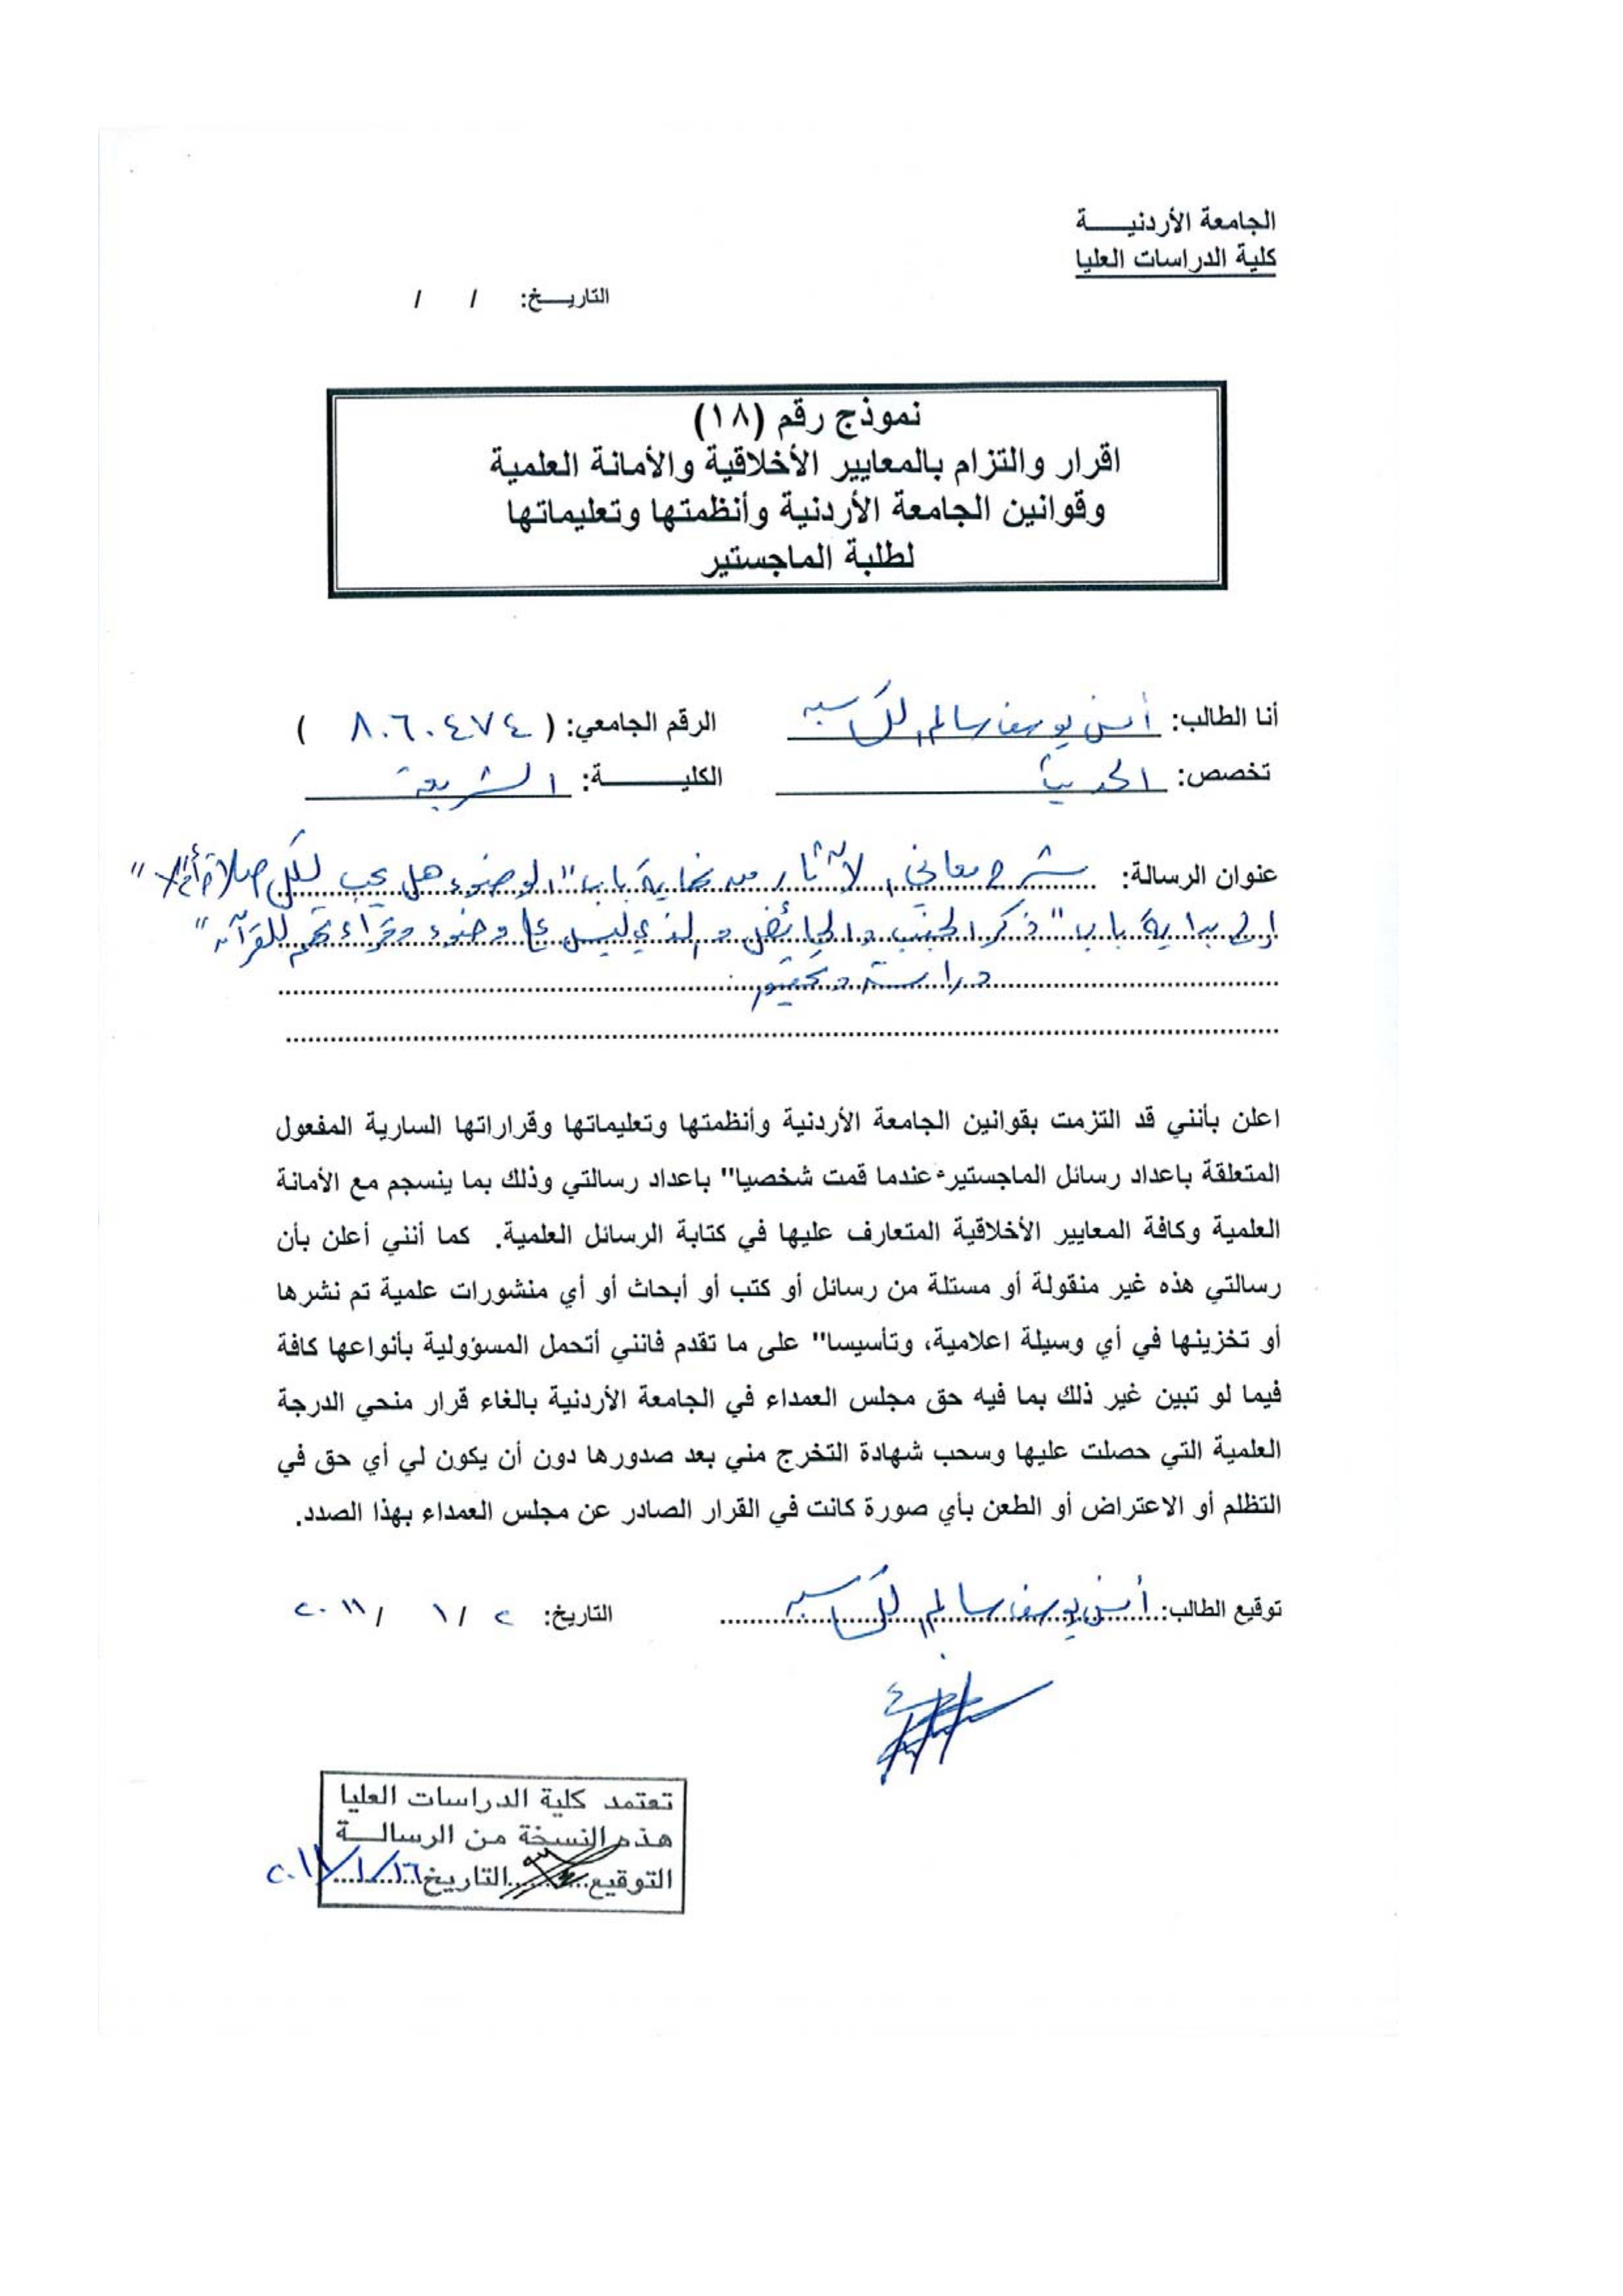 الجامعة الأردنيـــــة
كلية الدراسات العليا
التاريـــخ: / /
نموذج رقم (١٨)
اقرار والتزام بالمعايير الأخلاقية والأمانة العلمية
وقوانين الجامعة الأردنية وأنظمتها وتعليماتها
لطلبة الماجستير
أنا الطالب: أنس يوسف سالم الكساسبه الرقم الجامعي: ( ٨٠٦٠٤٧٤ )
تخصص: الحديث الكليـــــــة: الشريعة
عنوان الرسالة: شرح معاني الآثار من نهاية باب "الوضوء هل يجب لكل صلاة أم لا"
إلى بداية باب "ذكر الجنب والحائض والذي ليس على وضوء وقراءتهم للقرآن"
دراسة وتحقيق
اعلن بأنني قد التزمت بقوانين الجامعة الأردنية وأنظمتها وتعليماتها وقراراتها السارية المفعول
المتعلقة باعداد رسائل الماجستير عندما قمت شخصيا" باعداد رسالتي وذلك بما ينسجم مع الأمانة
العلمية وكافة المعايير الأخلاقية المتعارف عليها في كتابة الرسائل العلمية. كما أنني أعلن بأن
رسالتي هذه غير منقولة أو مستلة من رسائل أو كتب أو أبحاث أو أي منشورات علمية تم نشرها
أو تخزينها في أي وسيلة اعلامية، وتأسيسا" على ما تقدم فانني أتحمل المسؤولية بأنواعها كافة
فيما لو تبين غير ذلك بما فيه حق مجلس العمداء في الجامعة الأردنية بالغاء قرار منحي الدرجة
العلمية التي حصلت عليها وسحب شهادة التخرج مني بعد صدورها دون أن يكون لي أي حق في
التظلم أو الاعتراض أو الطعن بأي صورة كانت في القرار الصادر عن مجلس العمداء بهذا الصدد.
توقيع الطالب: أنس يوسف سالم الكساسبه التاريخ: ٢ / ١ / ٢٠١١
تعتمد كلية الدراسات العليا
هذه النسخة من الرسالـــة
التوقيع.......التاريخ ١٦/١/٢٠١١